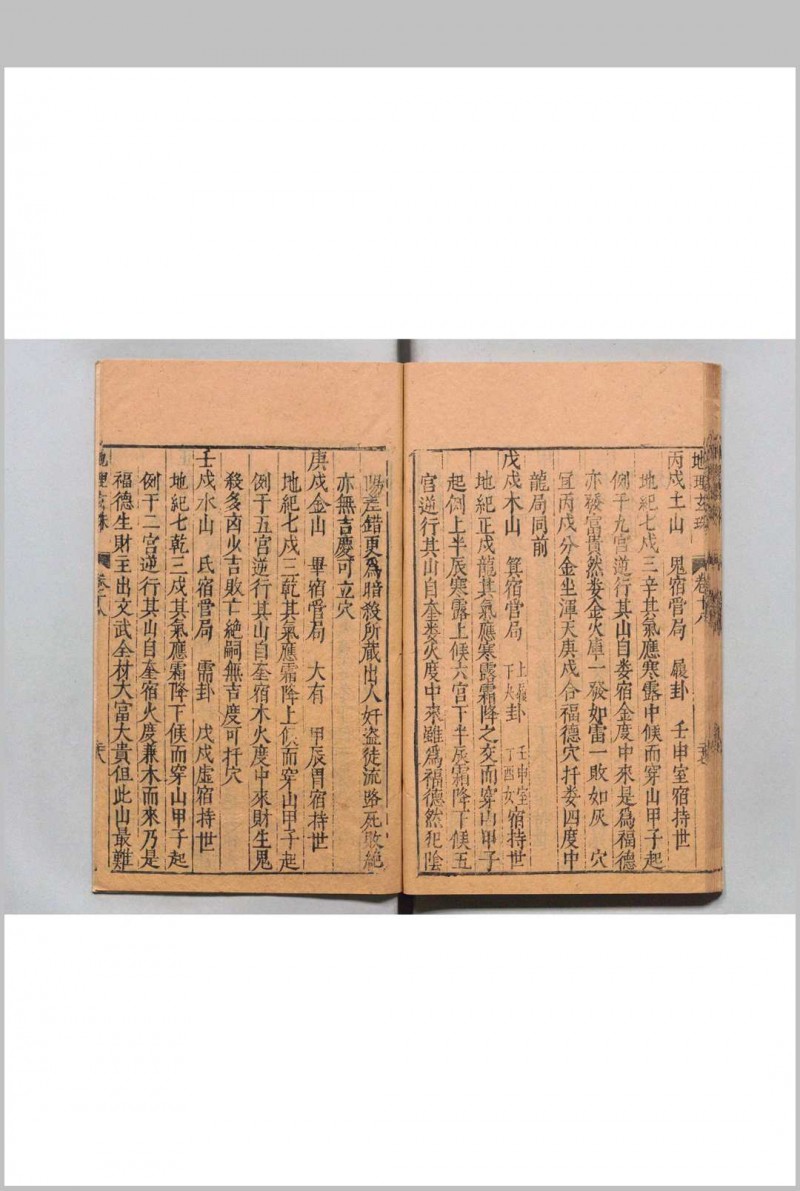 地理玄珠 卷十八
丙戌土山 鬼宿管局 履卦 壬申室宿持世
地紀七戌三辛其氣應寒露中候而穿山甲子起
例于九宮逆行其山自婁宿金度中來是爲福德
亦發富貴然婁金火庫一發如雷一敗如灰 穴
宜丙戌分金坐渾天庚戌合福德穴扦婁四度中
龍局同前
戊戌木山 箕宿管局 上履下夬卦 壬申室丁酉女宿持世
地紀正戌龍其氣應寒露霜降之交而穿山甲子
起例上半辰寒露上候六宮下半辰霜降下候五
宮逆行其山自奎婁火度中來雖爲福德然犯陰
陽差錯更爲暗殺所藏出人奸盗徒流路死敗絶
亦無吉慶可立穴
庚戌金山 畢宿管局 大有 甲辰胃宿持世
地紀七戌三乾其氣應霜降上候而穿山甲子起
例于五宮逆行其山自奎宿木火度中來財生鬼
殺多凶少吉敗亡絶嗣無吉慶可扦穴
壬戌水山 氐宿管局 需卦 戊戌虚宿持世
地紀七乾三戌其氣應霜降下候而穿山甲子起
例于二宮逆行其山自奎宿火度兼木而來乃是
福德生財主出文武全材大富大貴但此山最難
地理玄珠 卷十八